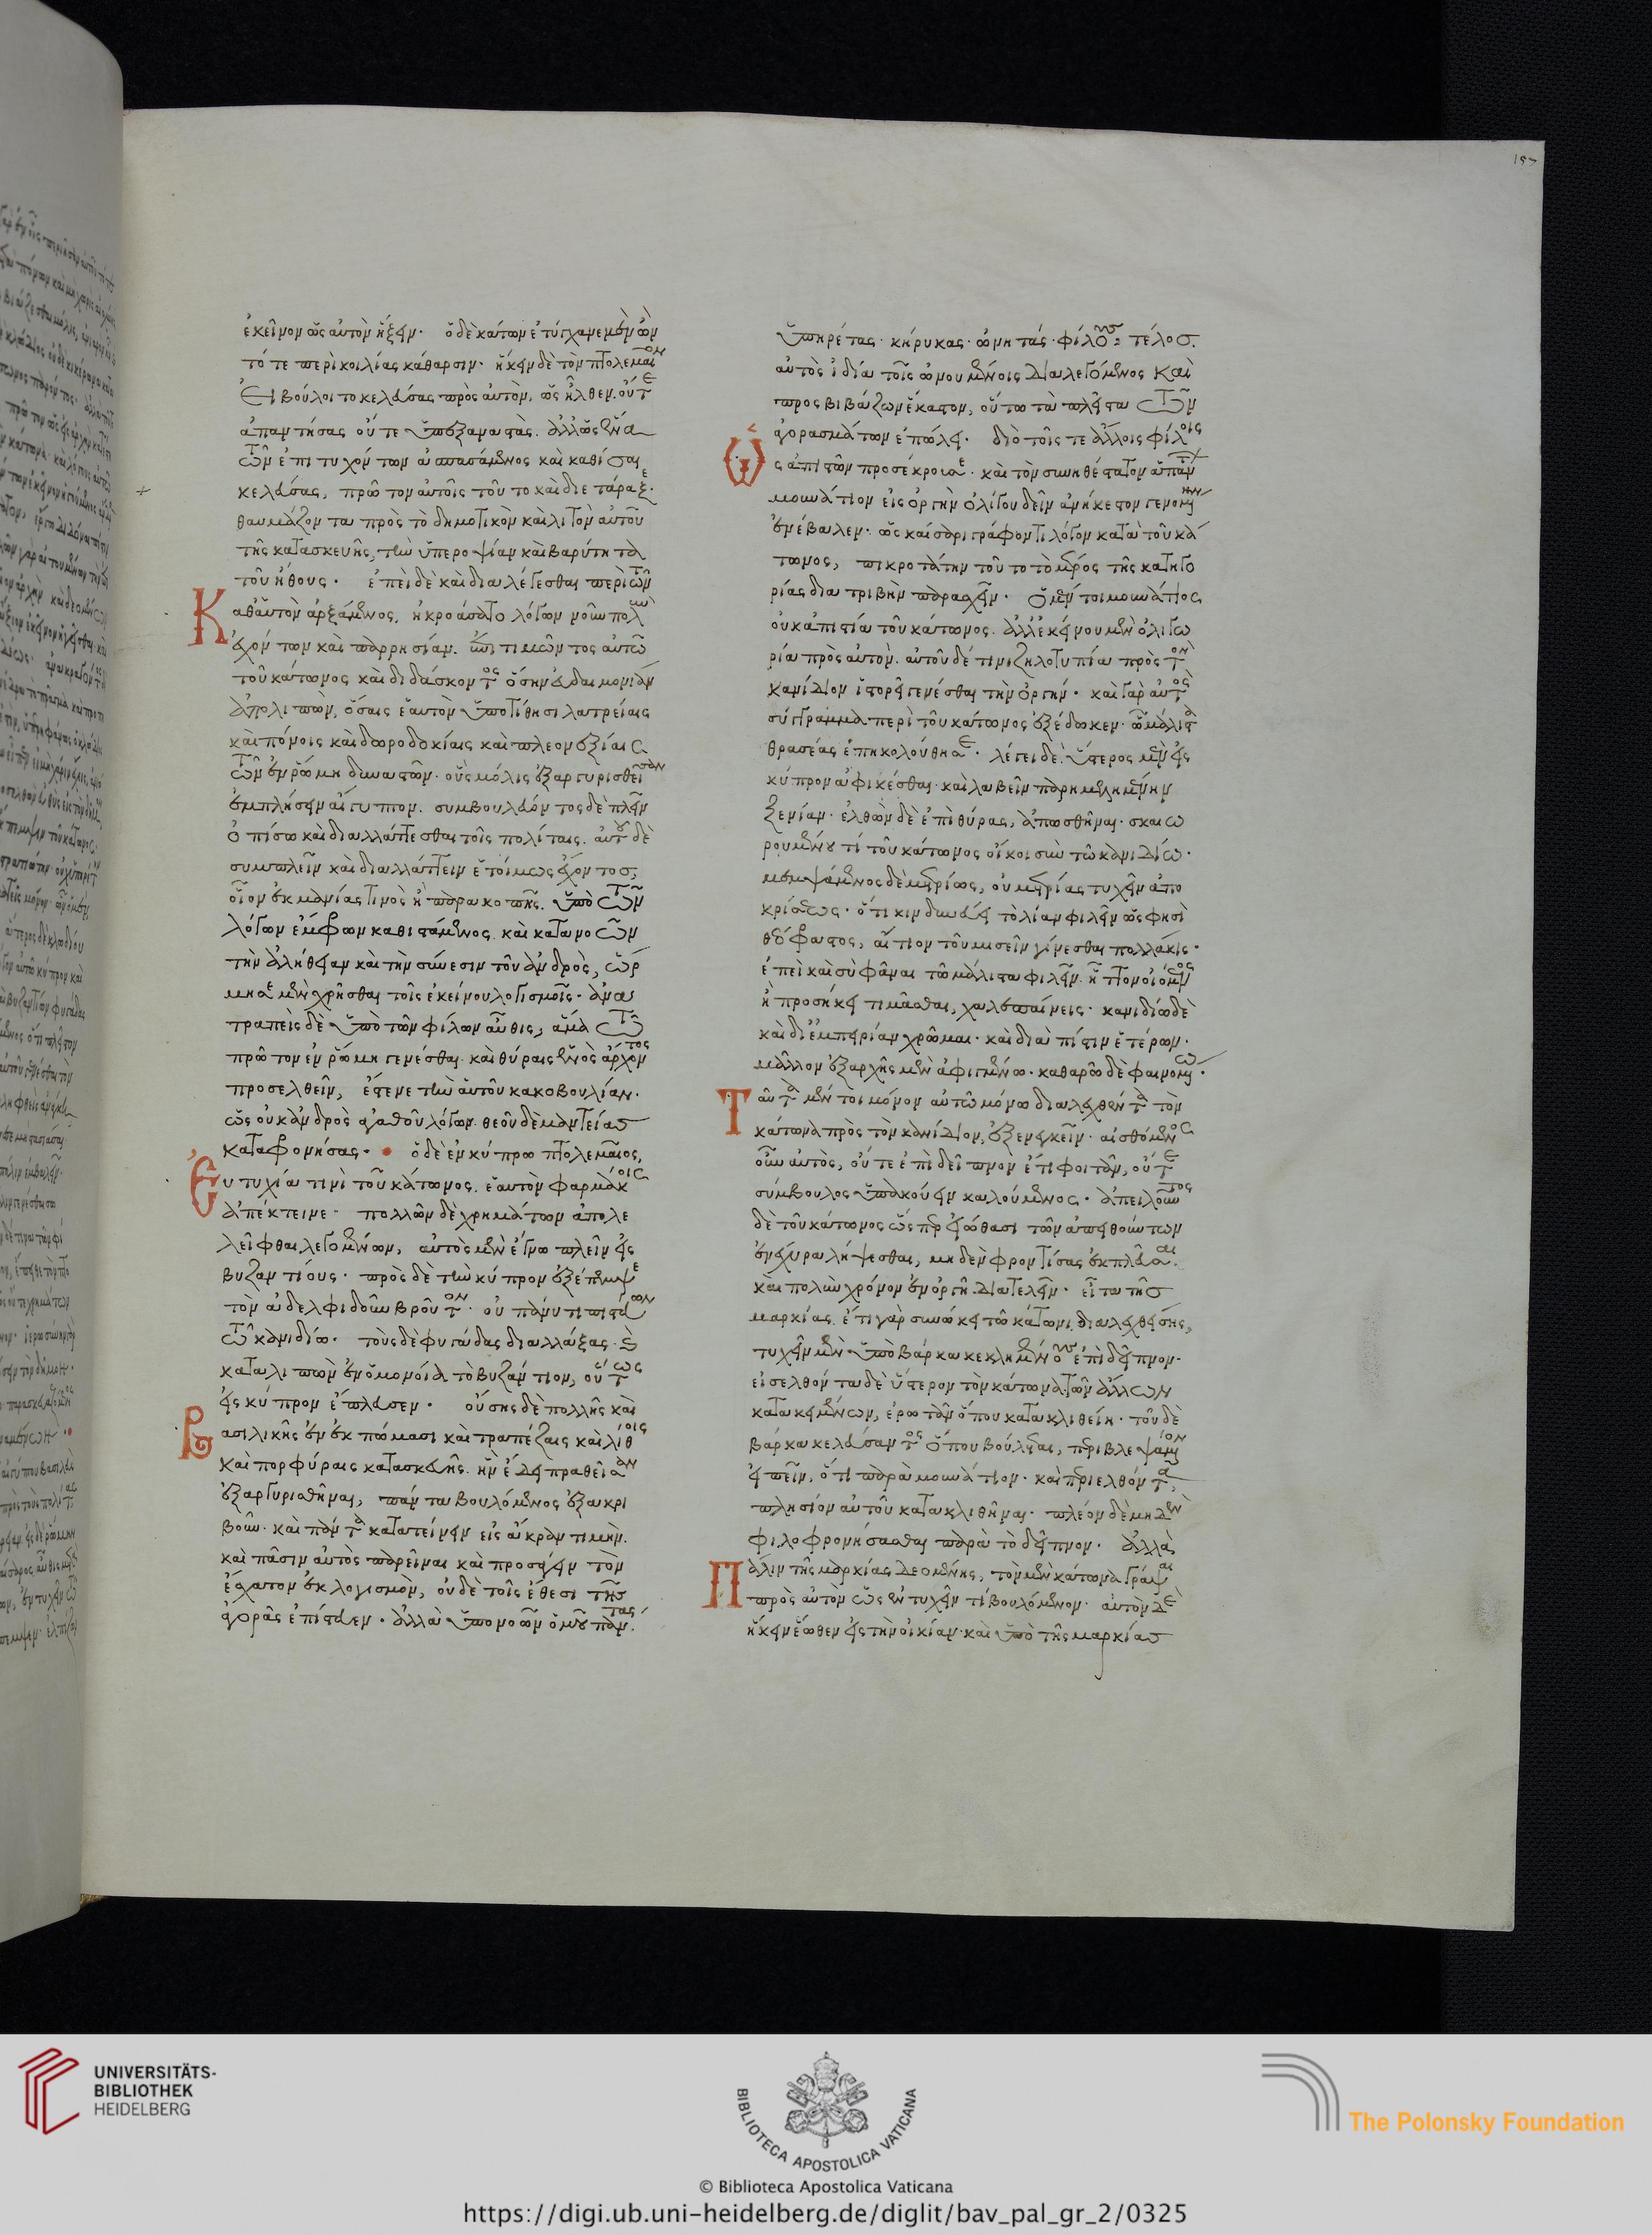 157
ἐκεῖνον ὡς αὐτὸν ἥξειν· ὁ δὲ κάτων ἐτύγχανε μὲν ὢν
τότε περὶ κοιλίας κάθαρσιν· ἥκειν δὲ τὸν πτολεμαῖον
εἰ βούλοιτο κελεύσας πρὸς αὐτὸν, ὡς ἦλθεν οὔτε
ἀπαντήσας οὔτε ὑπεξαναστὰς. ἀλλ' ὡς ἕνα
τῶν ἐπιτυχόντων ἀσπασάμενος καὶ καθίσαι
κελεύσας, πρῶτον αὐτοῖς τοῦτο καὶ διετάραξε·
θαυμάζοντα πρὸς τὸ δημοτικὸν καὶ λιτὸν αὐτοῦ
τῆς κατασκευῆς, τὴν ὑπεροψίαν καὶ βαρύτητα
τοῦ ἤθους· ἐπεὶ δὲ καὶ διαλέγεσθαι περὶ τῶν
καθ' αὑτὸν ἀρξάμενος, ἠκροάσατο λόγων νοῦν πολὺν
ἐχόντων καὶ παρρησίαν. ἐπιτιμῶντος αὐτῷ
τοῦ κάτωνος καὶ διδάσκοντος ὅσην εὐδαιμονίαν
ἀπολιπὼν, ὅσαις ἑαυτὸν ὑποτίθησι λατρείαις
καὶ πόνοις καὶ δωροδοκίαις καὶ πλεονεξίαις
τῶν ἐν ῥώμῃ δυνατῶν· οὓς μόλις ἐξαργυρισθεῖσαν
ἐμπλήσειν αἴγυπτον. συμβουλεύοντος δὲ πλεῖν
ὀπίσω καὶ διαλλάττεσθαι τοῖς πολίταις. αὐτοῦ δὲ
συμπλεῖν καὶ διαλλάττειν ἑτοίμως ἔχοντος,
οἷον ἐκ μανίας τινὸς ἢ παρακοπῆς. ὑπὸ τῶν
λόγων ἔμφρων καθιστάμενος καὶ κατανοῶν
τὴν ἀλήθειαν καὶ τὴν σύνεσιν τοῦ ἀνδρὸς, ὥρ
μησε μὲν χρῆσθαι τοῖς ἐκείνου λογισμοῖς· ἀνα
τραπεὶς δὲ ὑπὸ τῶν φίλων αὖθις, ἅμα τῷ
πρῶτον ἐν ῥώμῃ γενέσθαι καὶ θύραις ἑνὸς ἄρχοντος
προσελθεῖν, ἔστενε τὴν αὑτοῦ κακοβουλίαν·
ὡς οὐκ ἀνδρὸς ἀγαθοῦ λόγων. θεοῦ δὲ μαντείας
καταφρονήσας· ὁ δὲ ἐν κύπρῳ πτολεμαῖος,
εὐτυχίᾳ τινὶ τοῦ κάτωνος ἑαυτὸν φαρμάκοις
ἀπέκτεινε· πολλῶν δὲ χρημάτων ἀπολε
λεῖφθαι λεγομένων, αὐτὸς μὲν ἔγνω πλεῖν εἰς
βυζαντίους· πρὸς δὲ τὴν κύπρον ἐξέπεμψε
τὸν ἀδελφιδοῦν βροῦτον· οὐ πάνυ τι πιστεύων
τῷ κανιδίῳ· τοὺς δὲ φυγάδας διαλλάξας καὶ
καταλιπὼν ἐν ὁμονοίᾳ τὸ βυζάντιον, οὕτως
εἰς κύπρον ἔπλευσεν· οὔσης δὲ πολλῆς καὶ
βασιλικῆς ἐν ἐκπώμασι καὶ τραπέζαις καὶ λίθοις
καὶ πορφύραις κατασκευῆς· ἣν ἔδει πραθεῖσαν
ἐξαργυρισθῆναι, πάντα βουλόμενος ἐξακρι
βοῦν· καὶ πάντα κατατείνειν εἰς ἄκραν τιμὴν.
καὶ πᾶσιν αὐτὸς παρεῖναι καὶ προσάγειν τὸν
ἔσχατον ἐκλογισμὸν, οὐδὲ τοῖς ἔθεσι τῆς
ἀγορᾶς ἐπίστευεν· ἀλλὰ ὑπονοῶν ὁμοῦ πάντας
ὑπηρέτας· κήρυκας· ὠνητάς· φίλους: τέλος
αὐτὸς ἰδίᾳ τοῖς ὠνουμένοις διαλεγόμενος καὶ
προσβιβάζων ἕκαστον, οὕτω τὰ πλεῖστα τῶν
ἀγορασμάτων ἐπώλει· διὸ τοῖς τε ἄλλοις φίλοις
ὡς ἀπιστῶν προσέκρουσε· καὶ τὸν συνηθέστατον ἁπάντων
μουνάτιον εἰς ὀργὴν ὀλίγου δεῖν ἀνήκεστον γενομένην
ἐνέβαλεν· ὡς καίσαρι γράφοντι λόγον κατὰ τοῦ κά
τωνος, πικροτάτην τοῦτο τὸ μέρος τῆς κατηγο
ρίας διατριβὴν παρασχεῖν· ὁ μέντοι μουνάτιος
οὐκ ἀπιστίᾳ τοῦ κάτωνος. ἀλλ' ἐκείνου μὲν ὀλιγω
ρίᾳ πρὸς αὐτὸν. αὐτοῦ δέ τινι ζηλοτυπίᾳ πρὸς τὸν
κανίδιον ἱστορεῖ γενέσθαι τὴν ὀργήν· καὶ γὰρ αὐτὸς
σύγγραμμα περὶ τοῦ κάτωνος ἐξέδωκεν· ᾧ μάλιστα
θρασέας ἐπηκολούθησε· λέγει δὲ ὕστερος μὲν εἰς
κύπρον ἀφικέσθαι καὶ λαβεῖν παρημελημένην
ξενίαν· ἐλθὼν δὲ ἐπὶ θύρας, ἀπωσθῆναι· σκευω
ρουμένου τί τοῦ κάτωνος οἴκοι σὺν τῷ κανιδίῳ·
μεμψάμενος δὲ μετρίως, οὐ μετρίας τυχεῖν ἀπο
κρίσεως· ὅτι κινδυνεύει τὸ λίαν φιλεῖν ὥς φησὶ
θεόφραστος, αἴτιον τοῦ μισεῖν γίνεσθαι πολλάκις·
ἐπεὶ καὶ σὺ φᾶναι τῷ μάλιστα φιλεῖν. ἧττον οἰόμενος
ἢ προσήκει τιμᾶσθαι, χαλεπαίνεις· κανιδίῳ δὲ
καὶ δι' ἐμπειρίαν χρῶμαι· καὶ διὰ πίστιν ἑτέρων·
μᾶλλον ἐξ ἀρχῆς μὲν ἀφιγμένῳ· καθαρῷ δὲ φαινομένῳ·
ταῦτα μέντοι μόνον αὐτῷ μόνῳ διαλεχθέντα τὸν
κάτωνα πρὸς τὸν κανίδιον, ἐξενεγκεῖν· αἰσθόμενος
οὖν αὐτὸς, οὔτε ἐπὶ δεῖπνον ἔτι φοιτᾶν, οὔτε
σύμβουλος ὑπακούειν καλούμενος· ἀπειλοῦντος
δὲ τοῦ κάτωνος ὥς περ εἰώθασι τῶν ἀπειθούντων
ἐνέχυρα λήψεσθαι, μηδὲν φροντίσας ἐκπλεῦσαι·
καὶ πολὺν χρόνον ἐν ὀργῇ διατελεῖν· εἶτα τῆς
μαρκίας· ἔτι γὰρ συνῴκει τῷ κάτωνι διαλεχθείσης,
τυχεῖν μὲν ὑπὸ βάρκα κεκλημένους ἐπὶ δεῖπνον·
εἰσελθόντα δὲ ὕστερον τὸν κάτωνα τῶν ἄλλων
κατακειμένων, ἐρωτᾶν ὅπου κατακλιθείη· τοῦ δὲ
βάρκα κελεύσαντος ὅπου βούλεται, περιβλεψάμενον
εἰπεῖν, ὅτι παρὰ μουνάτιον· καὶ περιελθόντα,
πλησίον αὐτοῦ κατακλιθῆναι· πλέον δὲ μηδὲν
φιλοφρονήσασθαι παρὰ τὸ δεῖπνον· ἀλλὰ
πάλιν τῆς μαρκίας δεομένης, τὸν μὲν κάτωνα γράψαι
πρὸς αὐτὸν ὡς ἐντυχεῖν τί βουλόμενον· αὐτὸν δὲ
ἥκειν ἕωθεν εἰς τὴν οἰκίαν· καὶ ὑπὸ τῆς μαρκίας
UNIVERSITÄTS-
BIBLIOTHEK
HEIDELBERG
BIBLIOTECA APOSTOLICA VATICANA
© Biblioteca Apostolica Vaticana
The Polonsky Foundation
https://digi.ub.uni-heidelberg.de/diglit/bav_pal_gr_2/0325